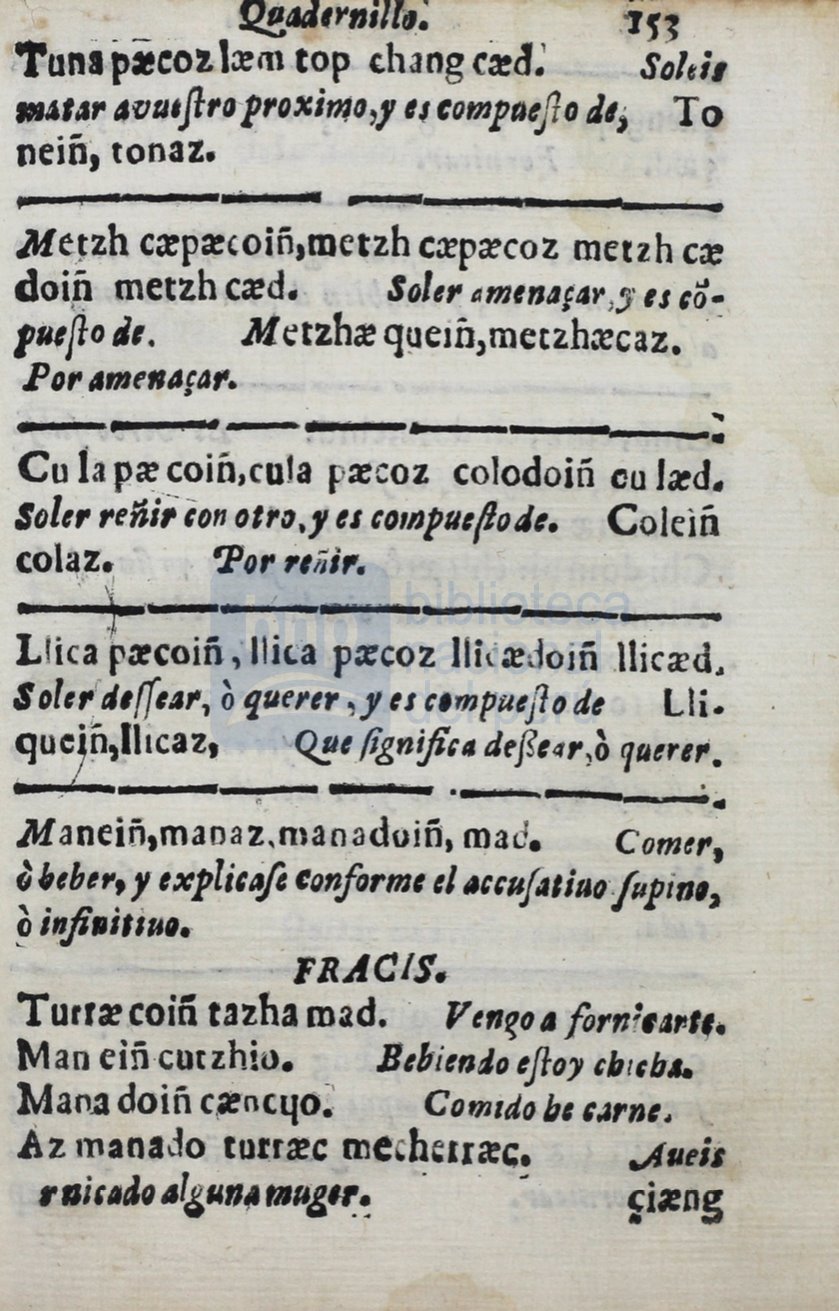 Quadernillo. 153
Tuna pæcoz læm top chang cæd. Soleis
matar avuestro proximo, y es compuesto de, To
neiñ, tonaz.
Metzh cæpæcoiñ, metzh cæpæcoz metzh cæ
doiñ metzh cæd. Soler amenaçar, y es cõ-
puesto de. Metzhæ queiñ, metzhæcaz.
Por amenaçar.
Cu la pæ coiñ, cula pæcoz colodoiñ cu læd.
Soler reñir con otro, y es compuesto de. Coleiñ
colaz. Por reñir.
Llica pæcoiñ, llica pæcoz llicædoiñ llicæd.
Soler deſſear, ò querer, y es compuesto de Lli-
queiñ, llicaz, Que ſignifica deßear, ò querer.
Maneiñ, manaz, manadoiñ, mad. Comer,
ò beber, y explicaſe conforme el accuſatiuo ſupino,
ò infinitiuo.
FRACIS.
Turræ coiñ tazha mad. Vengo a fornicarte.
Man eiñ cutzhio. Bebiendo eſtoy chicha.
Mana doiñ cæncɥo. Comido he carne.
Az manado turræc mecherræc. Aueis
rnicado alguna muger. çiæng
biblioteca
nacional
del perú